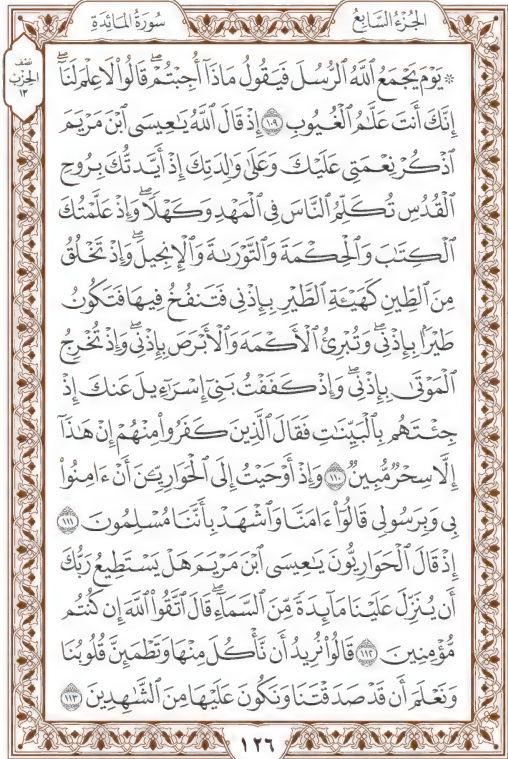 الجُزْءُ السَّابِعُ
سُورَةُ المَائِدَةِ
نصف
الحزب
١٣
۞ يَوْمَ يَجْمَعُ ٱللَّهُ ٱلرُّسُلَ فَيَقُولُ مَاذَآ أُجِبْتُمْۖ قَالُواْ لَا عِلْمَ لَنَآۖ
إِنَّكَ أَنتَ عَلَّٰمُ ٱلْغُيُوبِ ١٠٩ إِذْ قَالَ ٱللَّهُ يَٰعِيسَى ٱبْنَ مَرْيَمَ
ٱذْكُرْ نِعْمَتِي عَلَيْكَ وَعَلَىٰ وَٰلِدَتِكَ إِذْ أَيَّدتُّكَ بِرُوحِ
ٱلْقُدُسِ تُكَلِّمُ ٱلنَّاسَ فِي ٱلْمَهْدِ وَكَهْلًاۖ وَإِذْ عَلَّمْتُكَ
ٱلْكِتَٰبَ وَٱلْحِكْمَةَ وَٱلتَّوْرَىٰةَ وَٱلْإِنجِيلَۖ وَإِذْ تَخْلُقُ
مِنَ ٱلطِّينِ كَهَيْـَٔةِ ٱلطَّيْرِ بِإِذْنِي فَتَنفُخُ فِيهَا فَتَكُونُ
طَيْرًۢا بِإِذْنِيۖ وَتُبْرِئُ ٱلْأَكْمَهَ وَٱلْأَبْرَصَ بِإِذْنِيۖ وَإِذْ تُخْرِجُ
ٱلْمَوْتَىٰ بِإِذْنِيۖ وَإِذْ كَفَفْتُ بَنِيٓ إِسْرَٰٓءِيلَ عَنكَ إِذْ
جِئْتَهُم بِٱلْبَيِّنَٰتِ فَقَالَ ٱلَّذِينَ كَفَرُواْ مِنْهُمْ إِنْ هَٰذَآ
إِلَّا سِحْرٌ مُّبِينٌ ١١٠ وَإِذْ أَوْحَيْتُ إِلَى ٱلْحَوَارِيِّـۧنَ أَنْ ءَامِنُواْ
بِي وَبِرَسُولِي قَالُوٓاْ ءَامَنَّا وَٱشْهَدْ بِأَنَّنَا مُسْلِمُونَ ١١١
إِذْ قَالَ ٱلْحَوَارِيُّونَ يَٰعِيسَى ٱبْنَ مَرْيَمَ هَلْ يَسْتَطِيعُ رَبُّكَ
أَن يُنَزِّلَ عَلَيْنَا مَآئِدَةً مِّنَ ٱلسَّمَآءِۖ قَالَ ٱتَّقُواْ ٱللَّهَ إِن كُنتُم
مُّؤْمِنِينَ ١١٢ قَالُواْ نُرِيدُ أَن نَّأْكُلَ مِنْهَا وَتَطْمَئِنَّ قُلُوبُنَا
وَنَعْلَمَ أَن قَدْ صَدَقْتَنَا وَنَكُونَ عَلَيْهَا مِنَ ٱلشَّٰهِدِينَ ١١٣
١٢٦